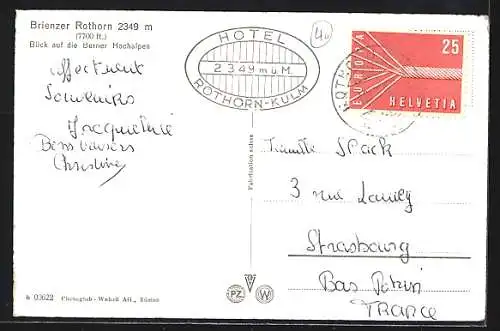 Brienzer Rothorn 2349 m
(7700 ft.)
Blick auf die Berner Hochalpen
HOTEL
2349 m ü. M.
ROTHORN-KULM
25
EUROPA
HELVETIA
Souvenirs
Bons baisers
Christine
Fabrication suisse
SPACK
3 rue
Strasbourg
Bas
France
PZ
W
03622 Photoglob-Wehrli AG., Zürich